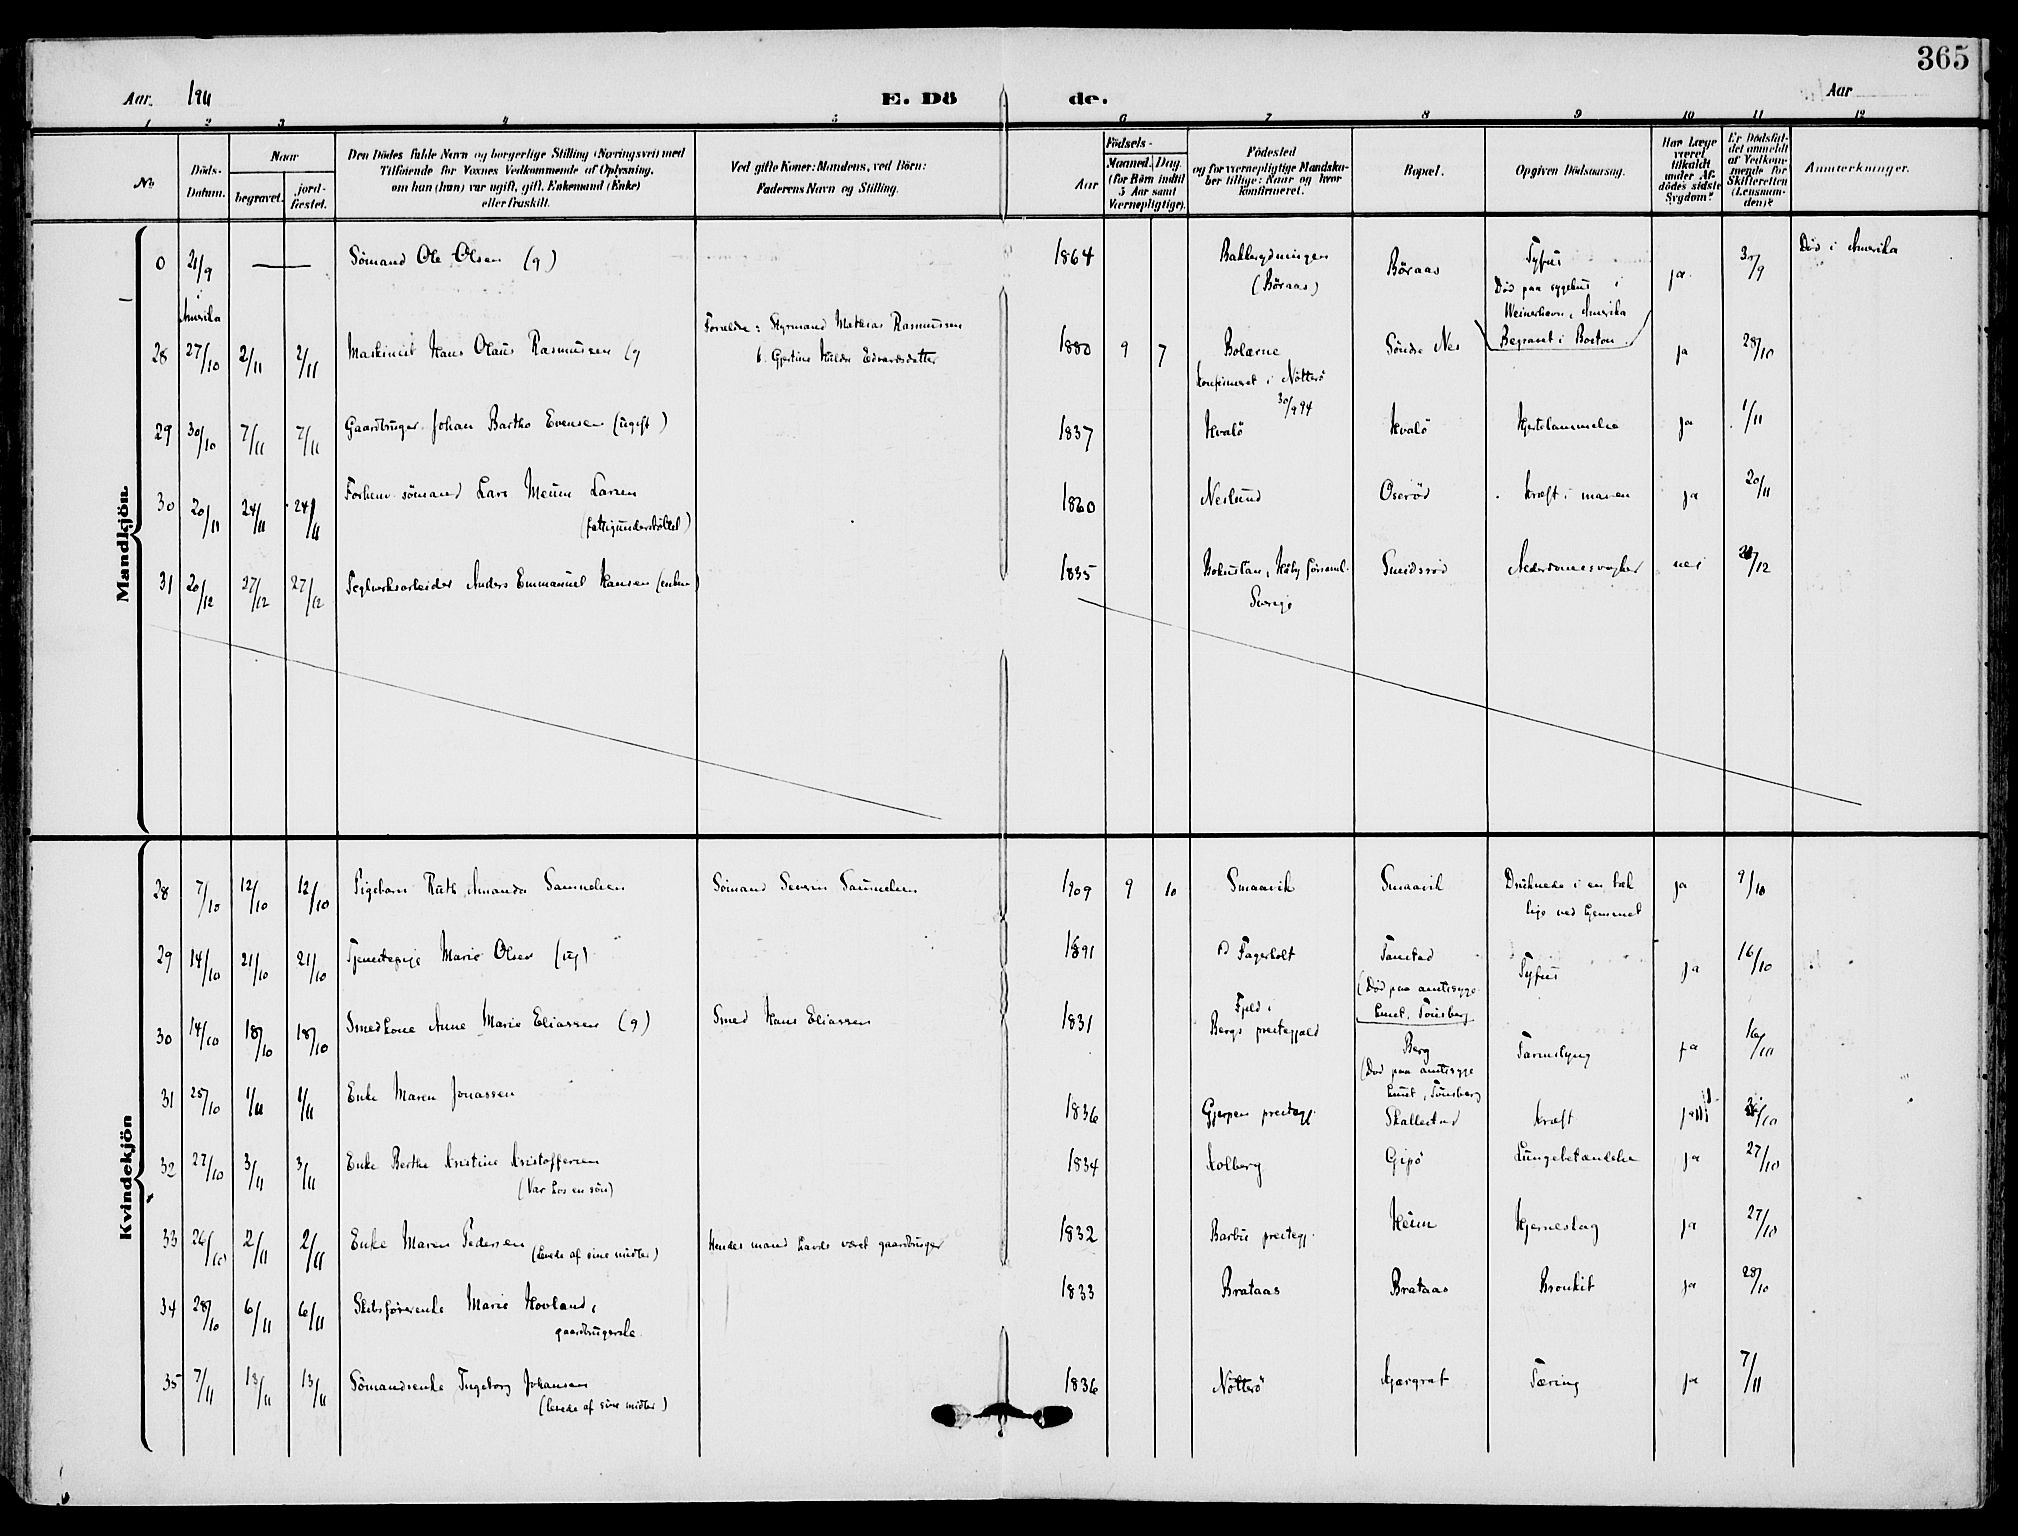 365
Aar. 1911 E. Dö de. Aar
1 2 3 4 5 6 7 8 9 10 11 12
No Döds-Datum. Naar begravet. jord-fæstet. Den Dödes fulde Navn og borgerlige Stilling (Næringsvei) med Tilföiende for Voxnes Vedkommende af Oplysning, om han (hun) var ugift, gift, Enkemand (Enke) eller fraskilt. Ved gifte Koner: Mandens, ved Börn: Faderens Navn og Stilling. Födsels- Aar Maaned. Dag (for Börn indtil 5 Aar samt Værnepligtige). Födested og for værnepligtige Mandskaber tillige: Naar og hvor konfirmeret. Bopæl. Opgiven Dödsaarsag. Har Læge været tilkaldt under Afdödes sidste Sygdom? Er Dödsfaldet anmeldt af Vedkommende for Skifteretten (Lensmanden)? Anmærkninger.
Mandkjön.
0 21/9 i Amerika — Sömand Ole Olsen (g) 1864 Bakkerydningen (Böraas) Böraas Tyfus Död paa sygehus i Amerika Begravet i Boston ja Död i Amerika
28 27/10 2/11 2/11 Maskinist Hans Olaus Rasmussen (g Forældre: Styrmand Mathias Rasmussen
Gjertine Huldre Edvardsdatter 1880 9 7 Bolærne konfirmeret i Nötterö 30/9 94 Söndre Nes ja 28/10
29 30/10 7/11 7/11 Gaardbruger Johan Bartho Evensen (ugift) 1837 Hvalö Hvalö Hjertelammelse ja 1/11
30 20/11 24/11 24/11 Forhenv. sömand Lars Larsen
(fattigunderstöttet) 1860 Neslund Oseröd kræft i maven ja 20/11
31 20/12 27/12 27/12 Teglverksarbeider Anders Emmanuel Hansen (enkem) 1835 Bohuslän, Sverige Smidsröd Alderdomssvaghet nei /12
Kvindekjön
28 7/10 12/10 12/10 Pigebarn Ruth Amanda Samuelsen Sömand Severin Samuelsen 1909 9 10 Smaavik Smaavik Druknede i en bæk lige ved hjemmet ja 9/10
29 14/10 21/10 21/10 Tjenestepige Marie Olsen (ug) 1891 Fagerholt Tanstad (Död paa amtssygehuset, Tönsberg Tyfus ja 16/10
30 14/10 18/10 18/10 Smedkone Anne Marie Eliassen (g) Smed Hans Eliassen 1831 Fjeld i Bergs prestegjeld Berg (Död paa amtssygehuset, Tönsberg Tarmslyng ja 16/10
31 25/10 1/11 1/11 Enke Maren Jonassen 1836 Gjerpen prestegj. Skallestad kræft ja /10
32 27/10 3/11 3/11 Enke Berthe Kristine Kristoffersen
(Var hos en sön) 1834 Holberg Gipö Lungebetændelse ja 27/10
33 26/10 2/11 2/11 Enke Maren Pedersen
(Levede af sine midler) Hendes mand havde været gaardbruger 1832 Barbu prestegj. Heim Hjerneslag ja 27/10
34 28/10 6/11 6/11 Skibsförerenke Marie Hovland,
gaardbrugerske. 1833 Brataas Brataas Bronkit ja 28/10
35 7/11 13/11 13/11 Sömandsenke Ingeborg Johansen
(levede af sine midler) 1836 Nötterö Kjærgrat Tæring ja 7/11